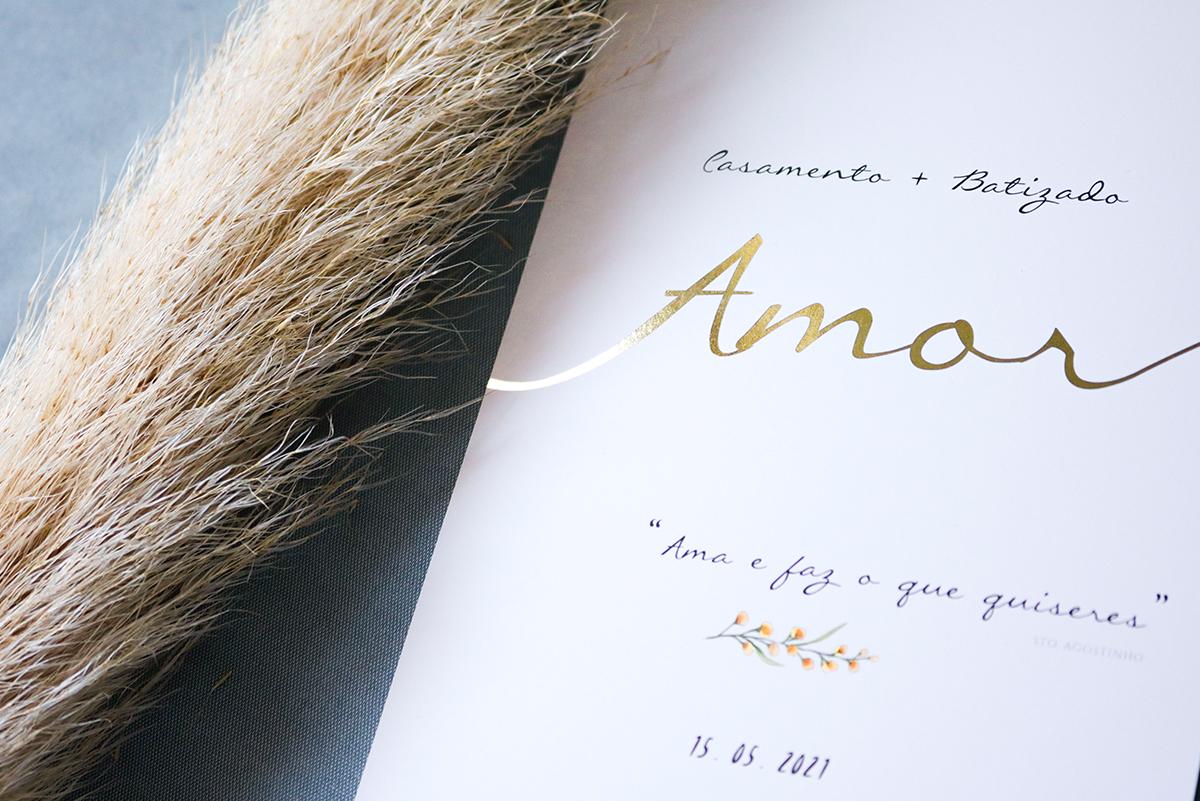 Casamento + Batizado
Amor
“Ama e faz o que quiseres”
STO AGOSTINHO
15. 05. 2021